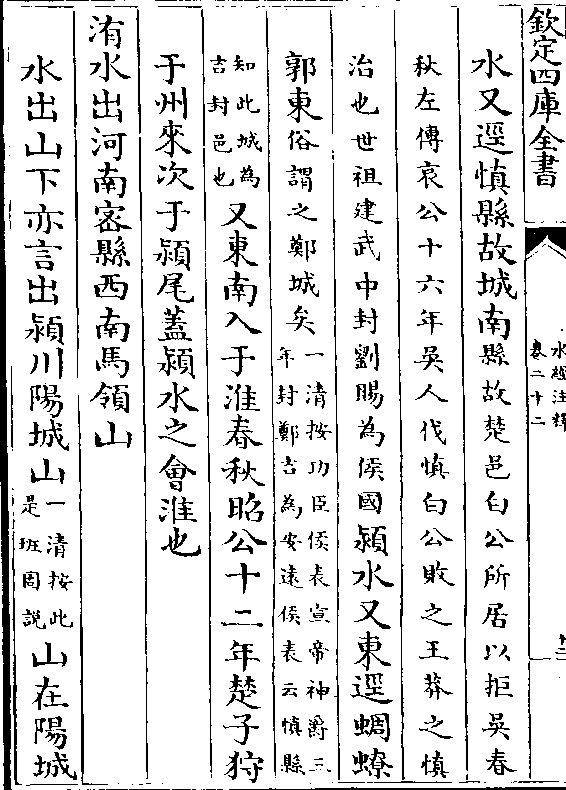 欽定四庫全書
水經注釋
卷二十二
水又逕慎縣故城南縣故楚邑白公所居以拒吳春
秋左傳哀公十六年吳人伐慎白公敗之王莽之慎
治也世祖建武中封劉賜為侯國潁水又東逕蜩蟟
郭東俗謂之鄭城矣一清按功臣侯表宣帝神爵三
年封鄭吉為安遠侯表云慎縣
知此城為
吉封邑也又東南入于淮春秋昭公十二年楚子狩
于州來次于潁尾蓋潁水之會淮也
洧水出河南密縣西南馬領山
水出山下亦言出潁川陽城山一清按此
是班固說山在陽城